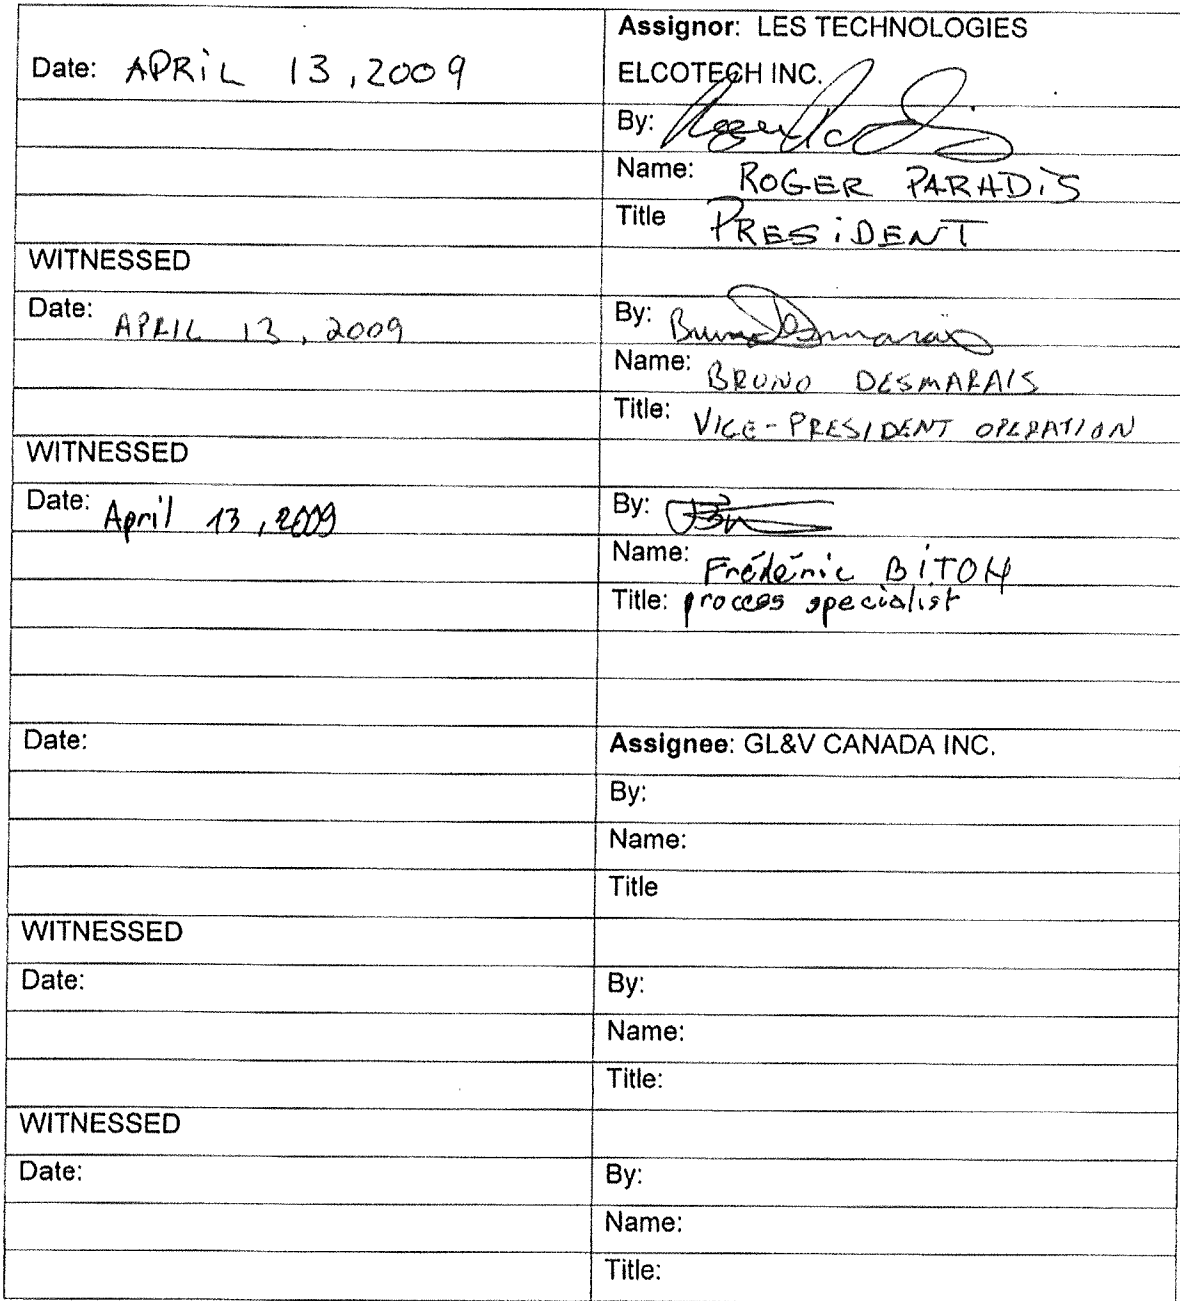 Date: APRiL 13, 2009
Assignor: LES TECHNOLOGIES
ELCOTECH INC.
By:
Name: ROGER PARADiS
Title PRESiDENT
WITNESSED
Date: APRIL 13, 2009
By: Bruno Desmarais
Name: BRUNO DESMARAIS
Title: VICE-PRESIDENT OPERATION
WITNESSED
Date: April 13, 2009
By:
Name: Frédéric
Title: procces specialist
Date:
Assignee: GL&V CANADA INC.
By:
Name:
Title
WITNESSED
Date:
By:
Name:
Title:
WITNESSED
Date:
By:
Name:
Title: